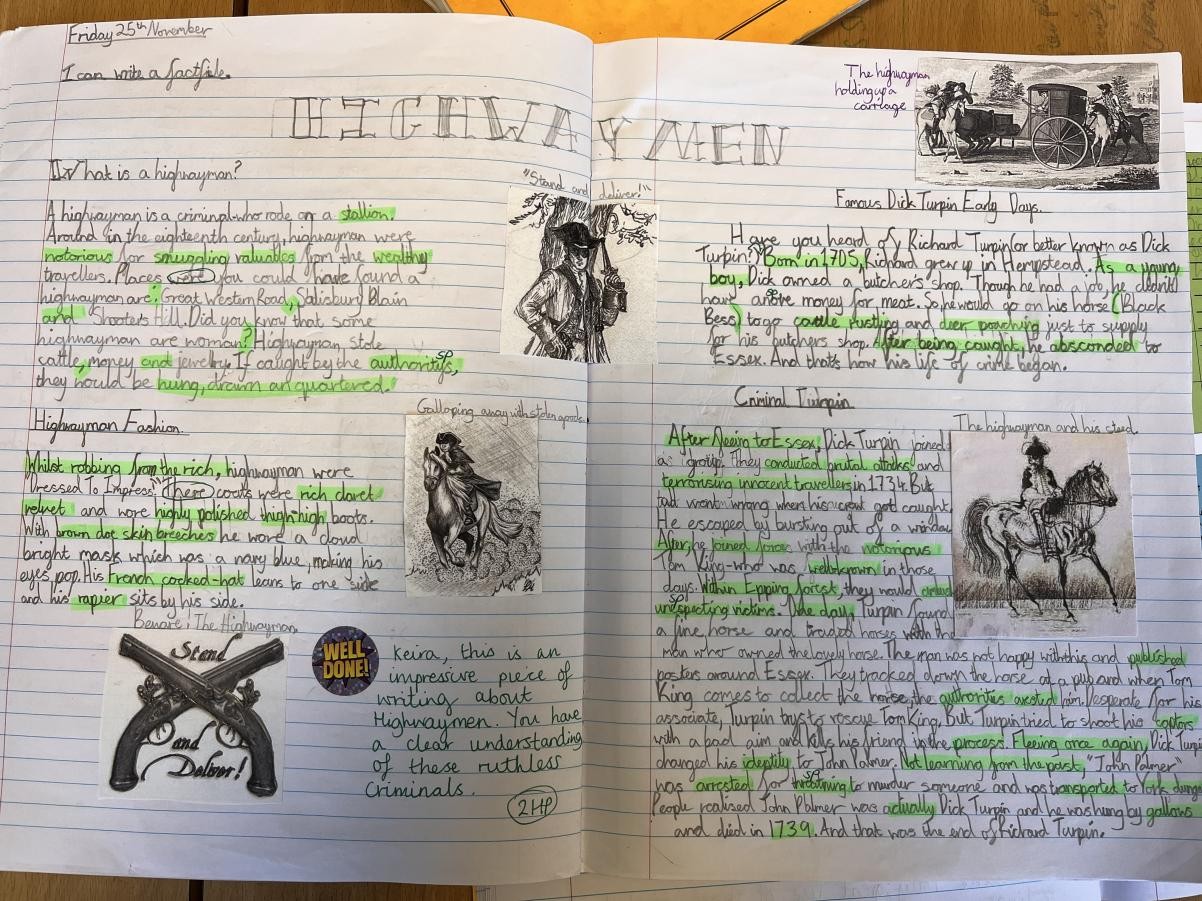 Friday 25th November
I can write a factfile.
HIGHWAYMEN
What is a highwayman?
A highwayman is a criminal-who rode on a stallion.
Around in the eighteenth century, highwayman were
notorious for smuggling valuables from the wealthy
travellers. Places were you could have found a
highwayman are: Great Western Road, Salisbury Blain
and Shooters Hill. Did you know that some
highwayman are woman? Highwayman stole
cattle, money and jewelry. If caught by the authoritys, sp
they would be hung, drawn an quartered.
"Stand and deliver!"
Highwayman Fashion.
Whilst robbing from the rich, highwayman were
"Dressed To Impress". There coats were rich claret
velvet and wore highly polished thigh-high boots.
With brown doe skin breeches he wore a cloud
bright mask which was a navy blue, making his
eyes pop. His French cocked-hat leans to one side
and his rapier sits by his side.
Galloping away with stolen goods.
Beware! The Highwayman
Stand
and
Deliver!
WELL
DONE!
Keira, this is an
impressive piece of
writing about
Highwaymen. You have
a clear understanding
of these ruthless
Criminals.
2HP
The highwayman
holding up a
carriage
Famous Dick Turpin Early Days.
Have you heard of Richard Turpin (or better known as Dick
Turpin?) Born in 1705, Richard grew up in Hempstead. As a young
boy, Dick owned a butcher's shop. Though he had a job, he didn't
have money for meat. So he would go on his horse (Black
Bess) to go cattle rustling and deer poaching just to supply
for his butchers shop. After being caught, he absconded to
Essex. And that's how his life of crime began.
Criminal Turpin
After fleeing to Essex, Dick Turpin joined
a group. They conducted brutal attacks and
terrorising innocent travellers in 1734. But
went wrong when his crew got caught.
He escaped by bursting out of a window
After, he joined forces with the notorious
Tom King-who was well-known in those
days. Within Epping forest, they would
sp
unespecting victims. One day, Turpin found
a fine horse and traded horses with the
man who owned the lovely horse. The man was not happy with this and published
posters around Essex. They tracked down the horse at a pub and when Tom
King comes to collect the horse, the authorities him. Desperate for his
associate, Turpin trys to rescue Tom King. But Turpin tried to shoot his captors
with a bad aim and kills his friend in the process. Fleeing once again, Dick Turpin
changed his identity to John Palmer. Not learning from the past, "John Palmer"
sp
was arrested for to murder someone and was transported to York
People realised John Palmer was actually Dick Turpin and he was hung by gallows
and died in 1739. And that was the end of Richard Turpin.
The highwayman and his steed